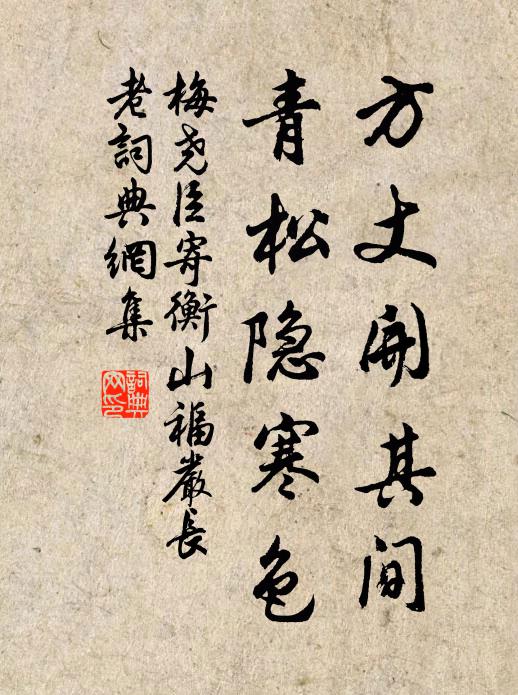 方丈開其間
青松隐寒色
梅尧臣寄衡山福嚴長
老詞典網集
詞典
网印